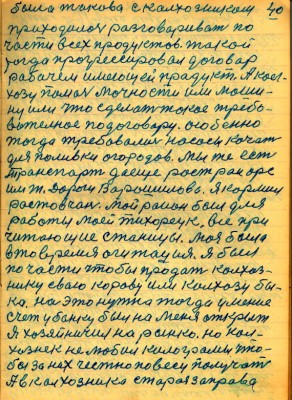 была такова с колхозником 40
приходилось разговариват по
части всех продуктов. такой
тогда прогрессировал договар
рабочем имеющей продукт. А кол-
хозу помоч мочности или маши-
ну или что сделат такое требо-
вателное подоговару. особенно
тогда требовали насосы качат
для поливки огородов. Мы же сет
транспорт да еще рост ран орс
им т. Дороги Варошилова. Я кормил
ростовчан. Мой район был для
работы моей тихорецк, все при
читающие станицы. Моя была
в то время агитация. Я был
по части чтобы продат колхоз-
нику сваю корову или колхозу бы-
ка. на это нужна тогда умение
счет у банку был на меня открыт
Я хозяйничал на рынке. но кол-
хозник не любил килограмы что-
бы за них честно по весу получат
А в колхозника стараза права